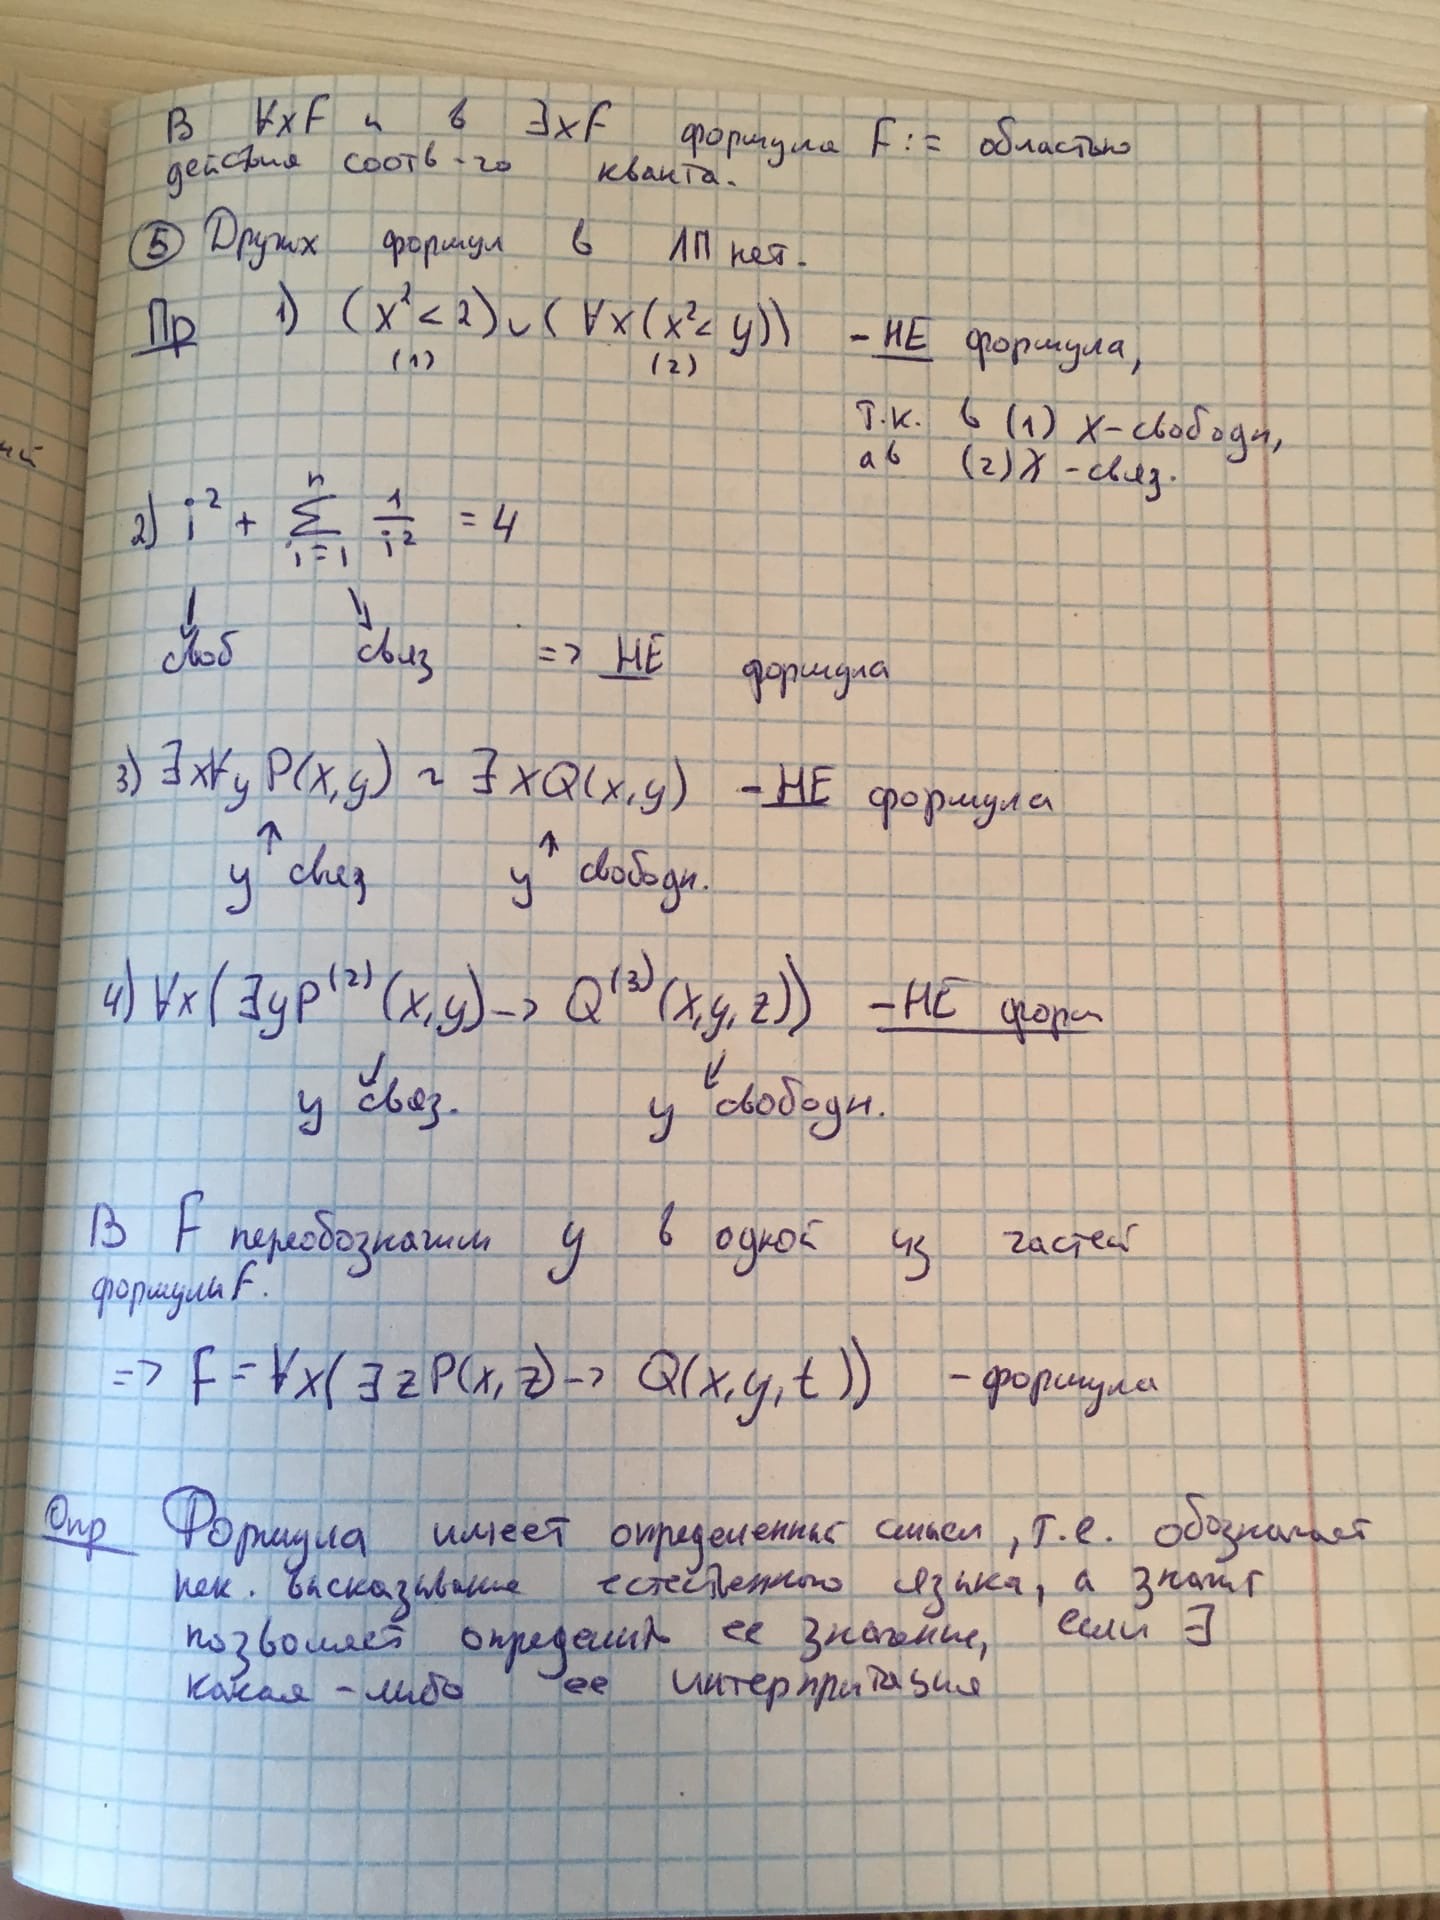 В ∀xF и в ∃xF формула F := областью
действия соотв-го кванта.
⑤ Других формул в ЛП нет.
Пр 1) (x² < 2) ∪ (∀x(x² < y)) - НЕ формула,
(1) (2)
т.к. в (1) x - свободн,
а в (2) x - связ.
2) i² + ∑ⁿᵢ₌₁ 1/i² = 4
своб связ => НЕ формула
3) ∃x∀y P(x,y) ~ ∃xQ(x,y) - НЕ формула
y связ y свободн.
4) ∀x(∃yP⁽²⁾(x,y) -> Q⁽³⁾(x,y,z)) - НЕ форм
y связ. y свободн.
В F переобозначим y в одной из частей
формулы F.
=> F = ∀x(∃zP(x,z) -> Q(x,y,t)) - формула
Опр Формула имеет определенный смысл, т.е. обозначает
нек. высказывание естественного языка, а значит
позволяет определить ее значение, если ∃
какая-либо ее интерпритация